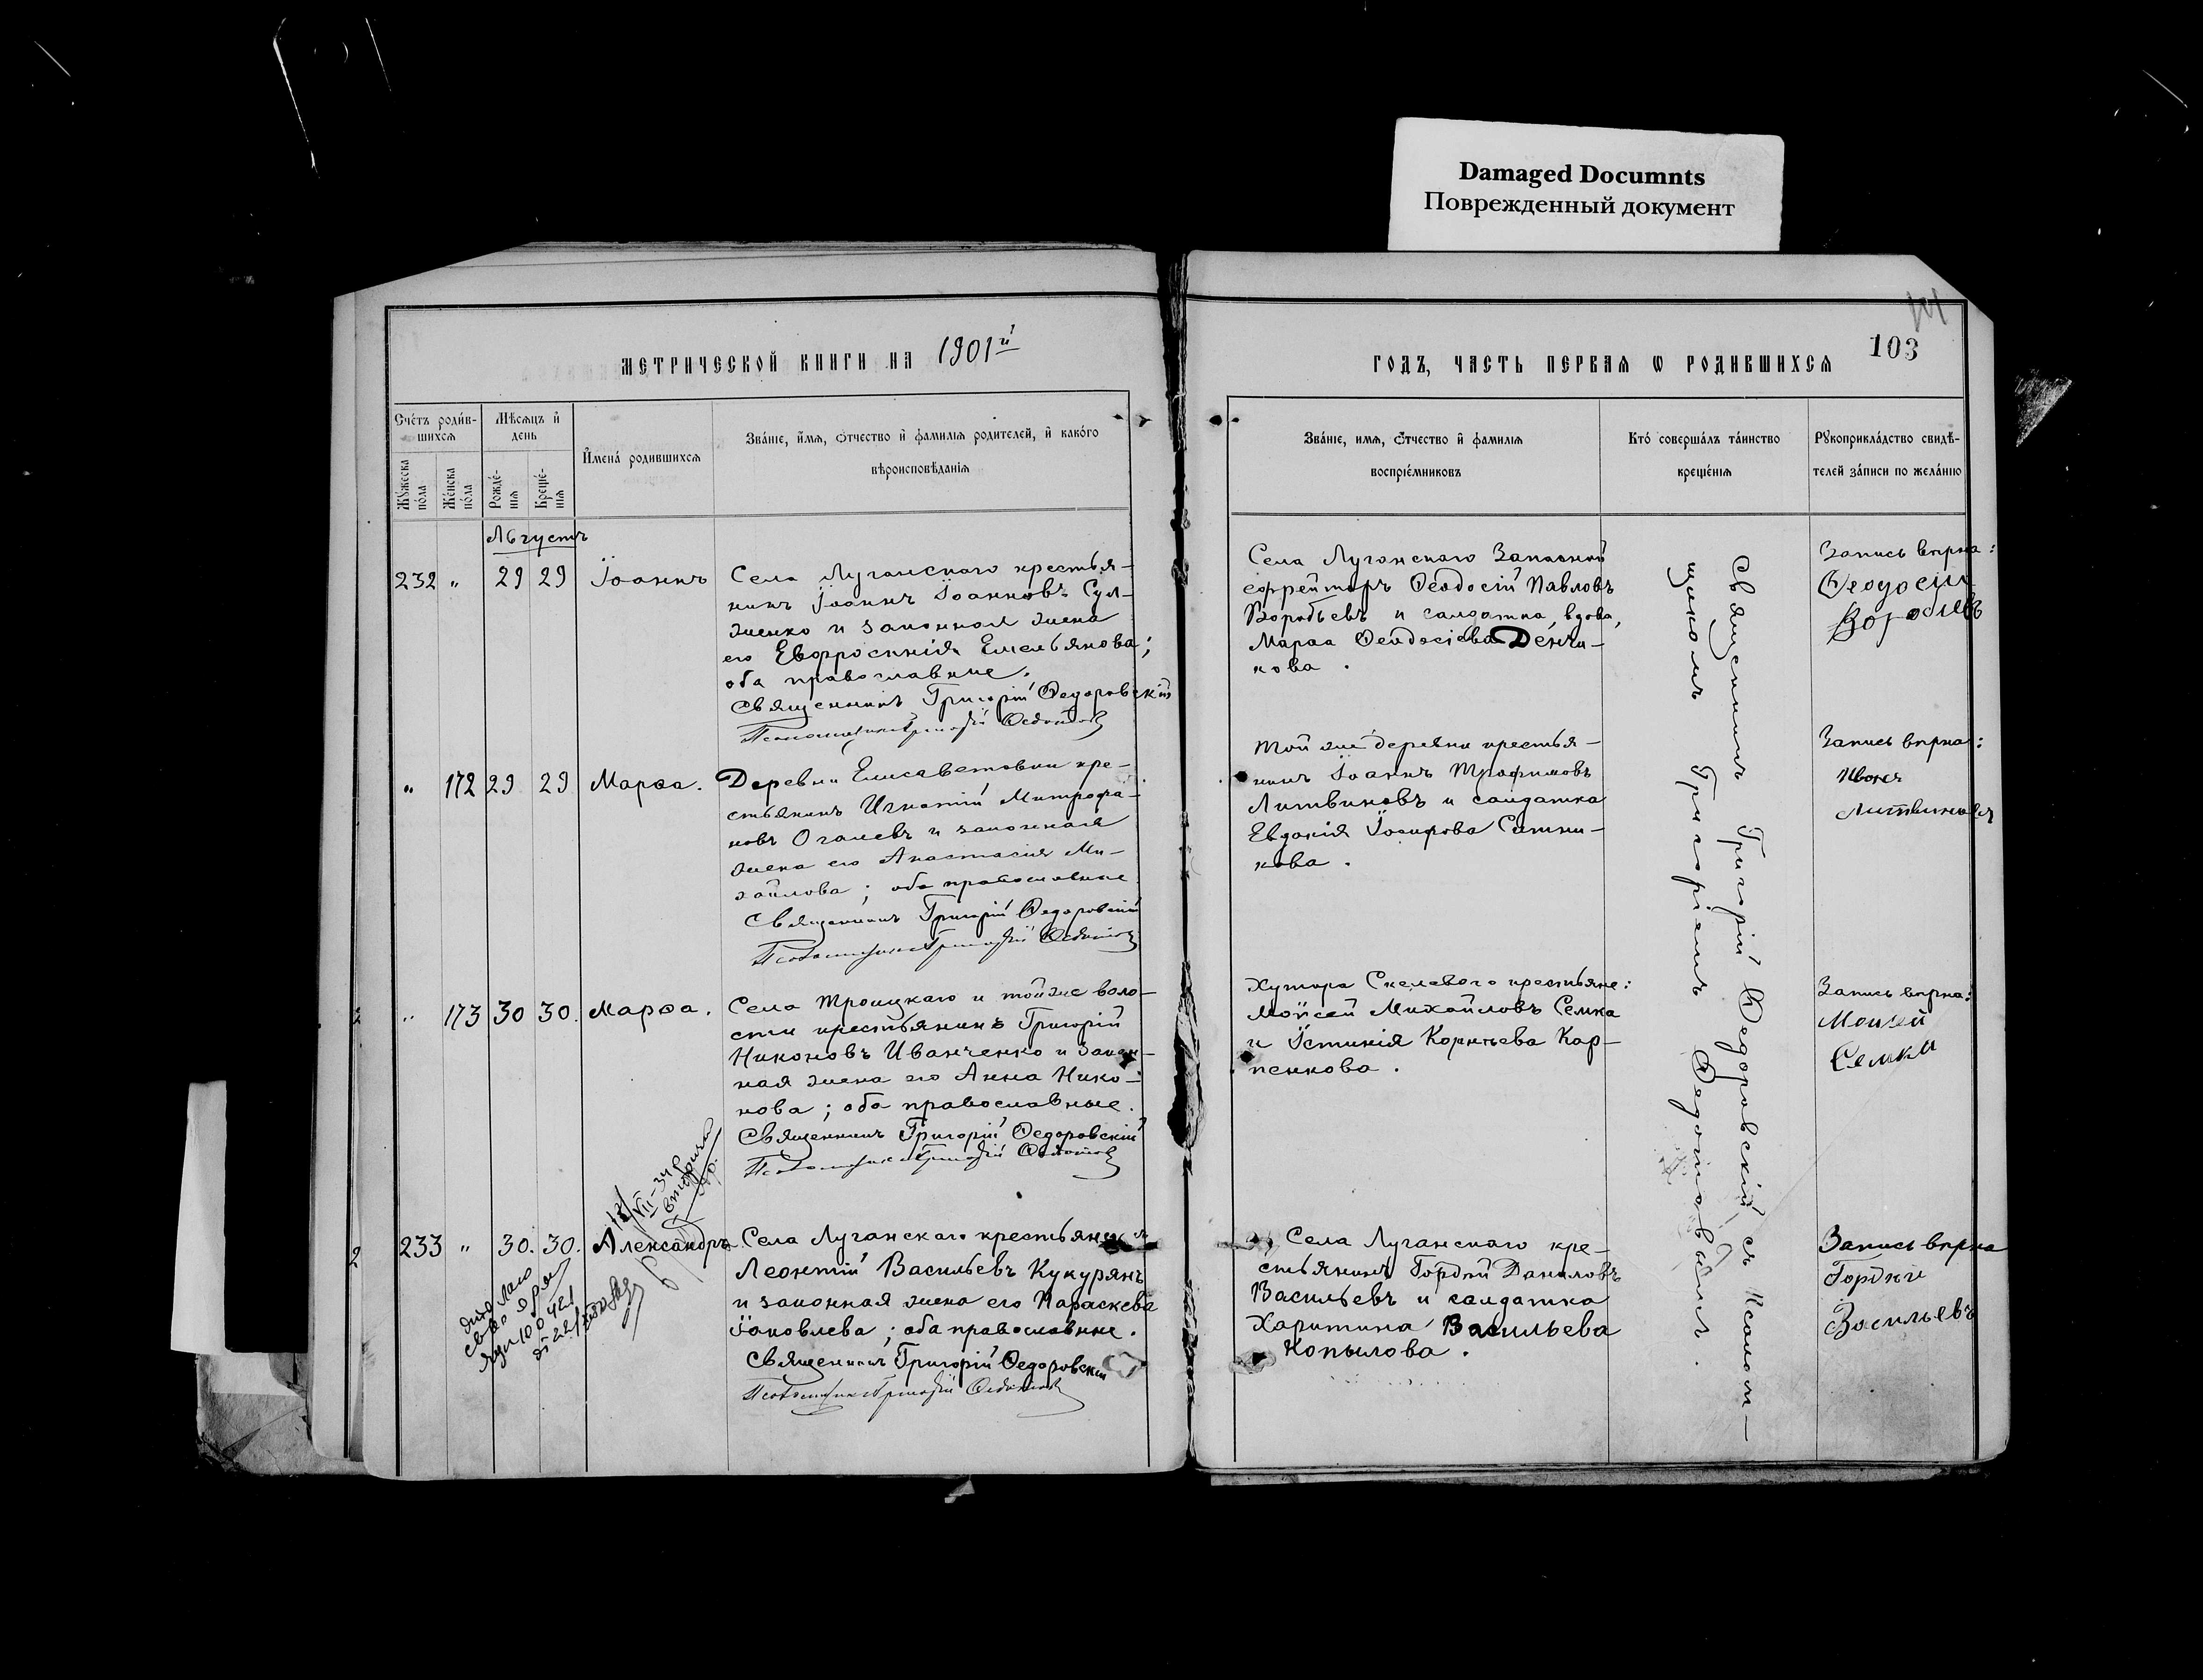 Damaged Documnts
Поврежденный документ
103
МЕТРИЧЕСКОЙ КНИГИ НА 1901й
ГОДЪ, ЧАСТЬ ПЕРВАЯ Ѡ РОДИВШИХСЯ
Сче́тъ роди́в-
шихся
Мѣсяцъ и҆
день
И҆мена̀ родившихся
Зва́нїе, и҆́мя, ѻ҆́тчество и҆ фамилїя родителей, и҆ како́го
вѣроисповѣданїя
Мꙋ́жеска
по́ла
Же́нска
по́ла
Рожде́-
нїя
Креще́-
нїя
Зва́нїе, имя, ѻ҆́тчество и҆ фамилїя
воспрїе́мниковъ
Кто̀ соверша́лъ та́инство
креще́нїя
Рꙋкоприкла́дство свидѣ́-
телей за́писи по жела́нїю
Августъ
232 " 29 29 Іоаннъ
Села Луганскаго крестья-
нинъ Іоаннъ Іоанновъ Сул-
женко и законная жена
его Евфросинія Емельянова;
оба православные.
Священникъ Григорій Федоровскій
Псаломщикъ Григорій Федотов
Села Луганскаго Запасный
ефрейторъ Ѳеодосій Павловъ
Воробьевъ и солдатка, вдова,
Марѳа Ѳеодосіева Денчи-
кова.
Запись вѣрна:
Феодосий
Воробьевъ
" 172 29 29 Марѳа.
Деревни Елисаветовки кре-
стьянинъ Игнатій Митрофа-
новъ Огалевъ и законная
жена его Анастасія Ми-
хайлова; оба православные
Священникъ Григорій Федоровскій
Псаломщикъ Григорій Федотов
Той же деревни крестья-
нинъ Іоаннъ Трофимовъ
Литвиновъ и солдатка
Евдокія Іосифова Ситни-
кова.
Запись вѣрна:
Иванъ
Литвиновъ
" 173 30 30. Марѳа.
Села Троицкаго и тойже воло-
сти крестьянинъ Григорій
Никоновъ Иванченко и закон-
ная жена его Анна Нико-
нова; оба православные.
Священникъ Григорій Федоровскій
Псаломщикъ Григорій Федотов
Хутора Скелевого крестьяне:
Моисей Михайловъ Семка
и Устинія Корнѣева Кар-
пенкова.
Запись вѣрна:
Моисей
Семка
233 " 30. 30. Александръ
Села Луганскаго крестьянинъ
Леонтій Васильевъ Кукурянъ
и законная жена его Параскева
Іаковлева; оба православные.
Священникъ Григорій Федоровскій
Псаломщикъ Григорій Федотов
Села Луганскаго кре-
стьянинъ Гордѣй Даниловъ
Васильевъ и солдатка
Харитина Васильева
Копылова.
Запись вѣрна
Гордѣй
Васильевъ
Священникъ Григорій Федоровскій съ Псалом-
щикомъ Григоріемъ Федотовымъ.